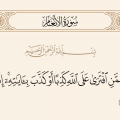 سورة الأنعام
بسم الله الرحمن الرحيم
مَّنِ افْتَرَىٰ عَلَى اللَّهِ كَذِبًا أَوْ كَذَّبَ بِآيَاتِهِ